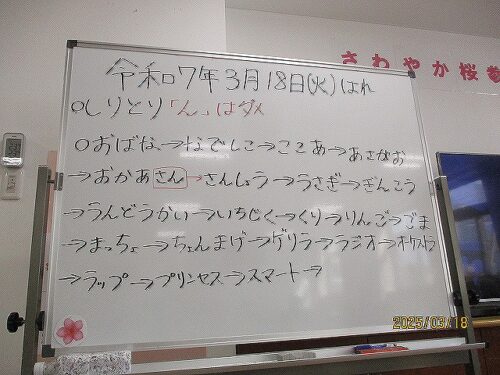 さわやか桜
令和7年3月18日(火)はれ
○しりとり「ん」はダメ
○おばな→なでしこ→ここあ→あさがお
→おかあさん→さんしょう→うさぎ→ぎんこう
→うんどうかい→いちじく→くり→りんご→ごま
→まっちょ→ちょんまげ→ゲリラ→ラジオ→オーケストラ
→ラップ→プリンセス→スマート→
2025/03/18